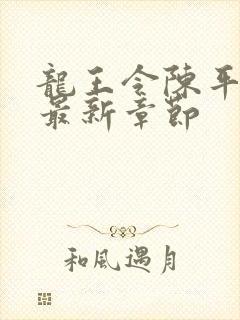 龍王令陳平
最新章節
和風遇月